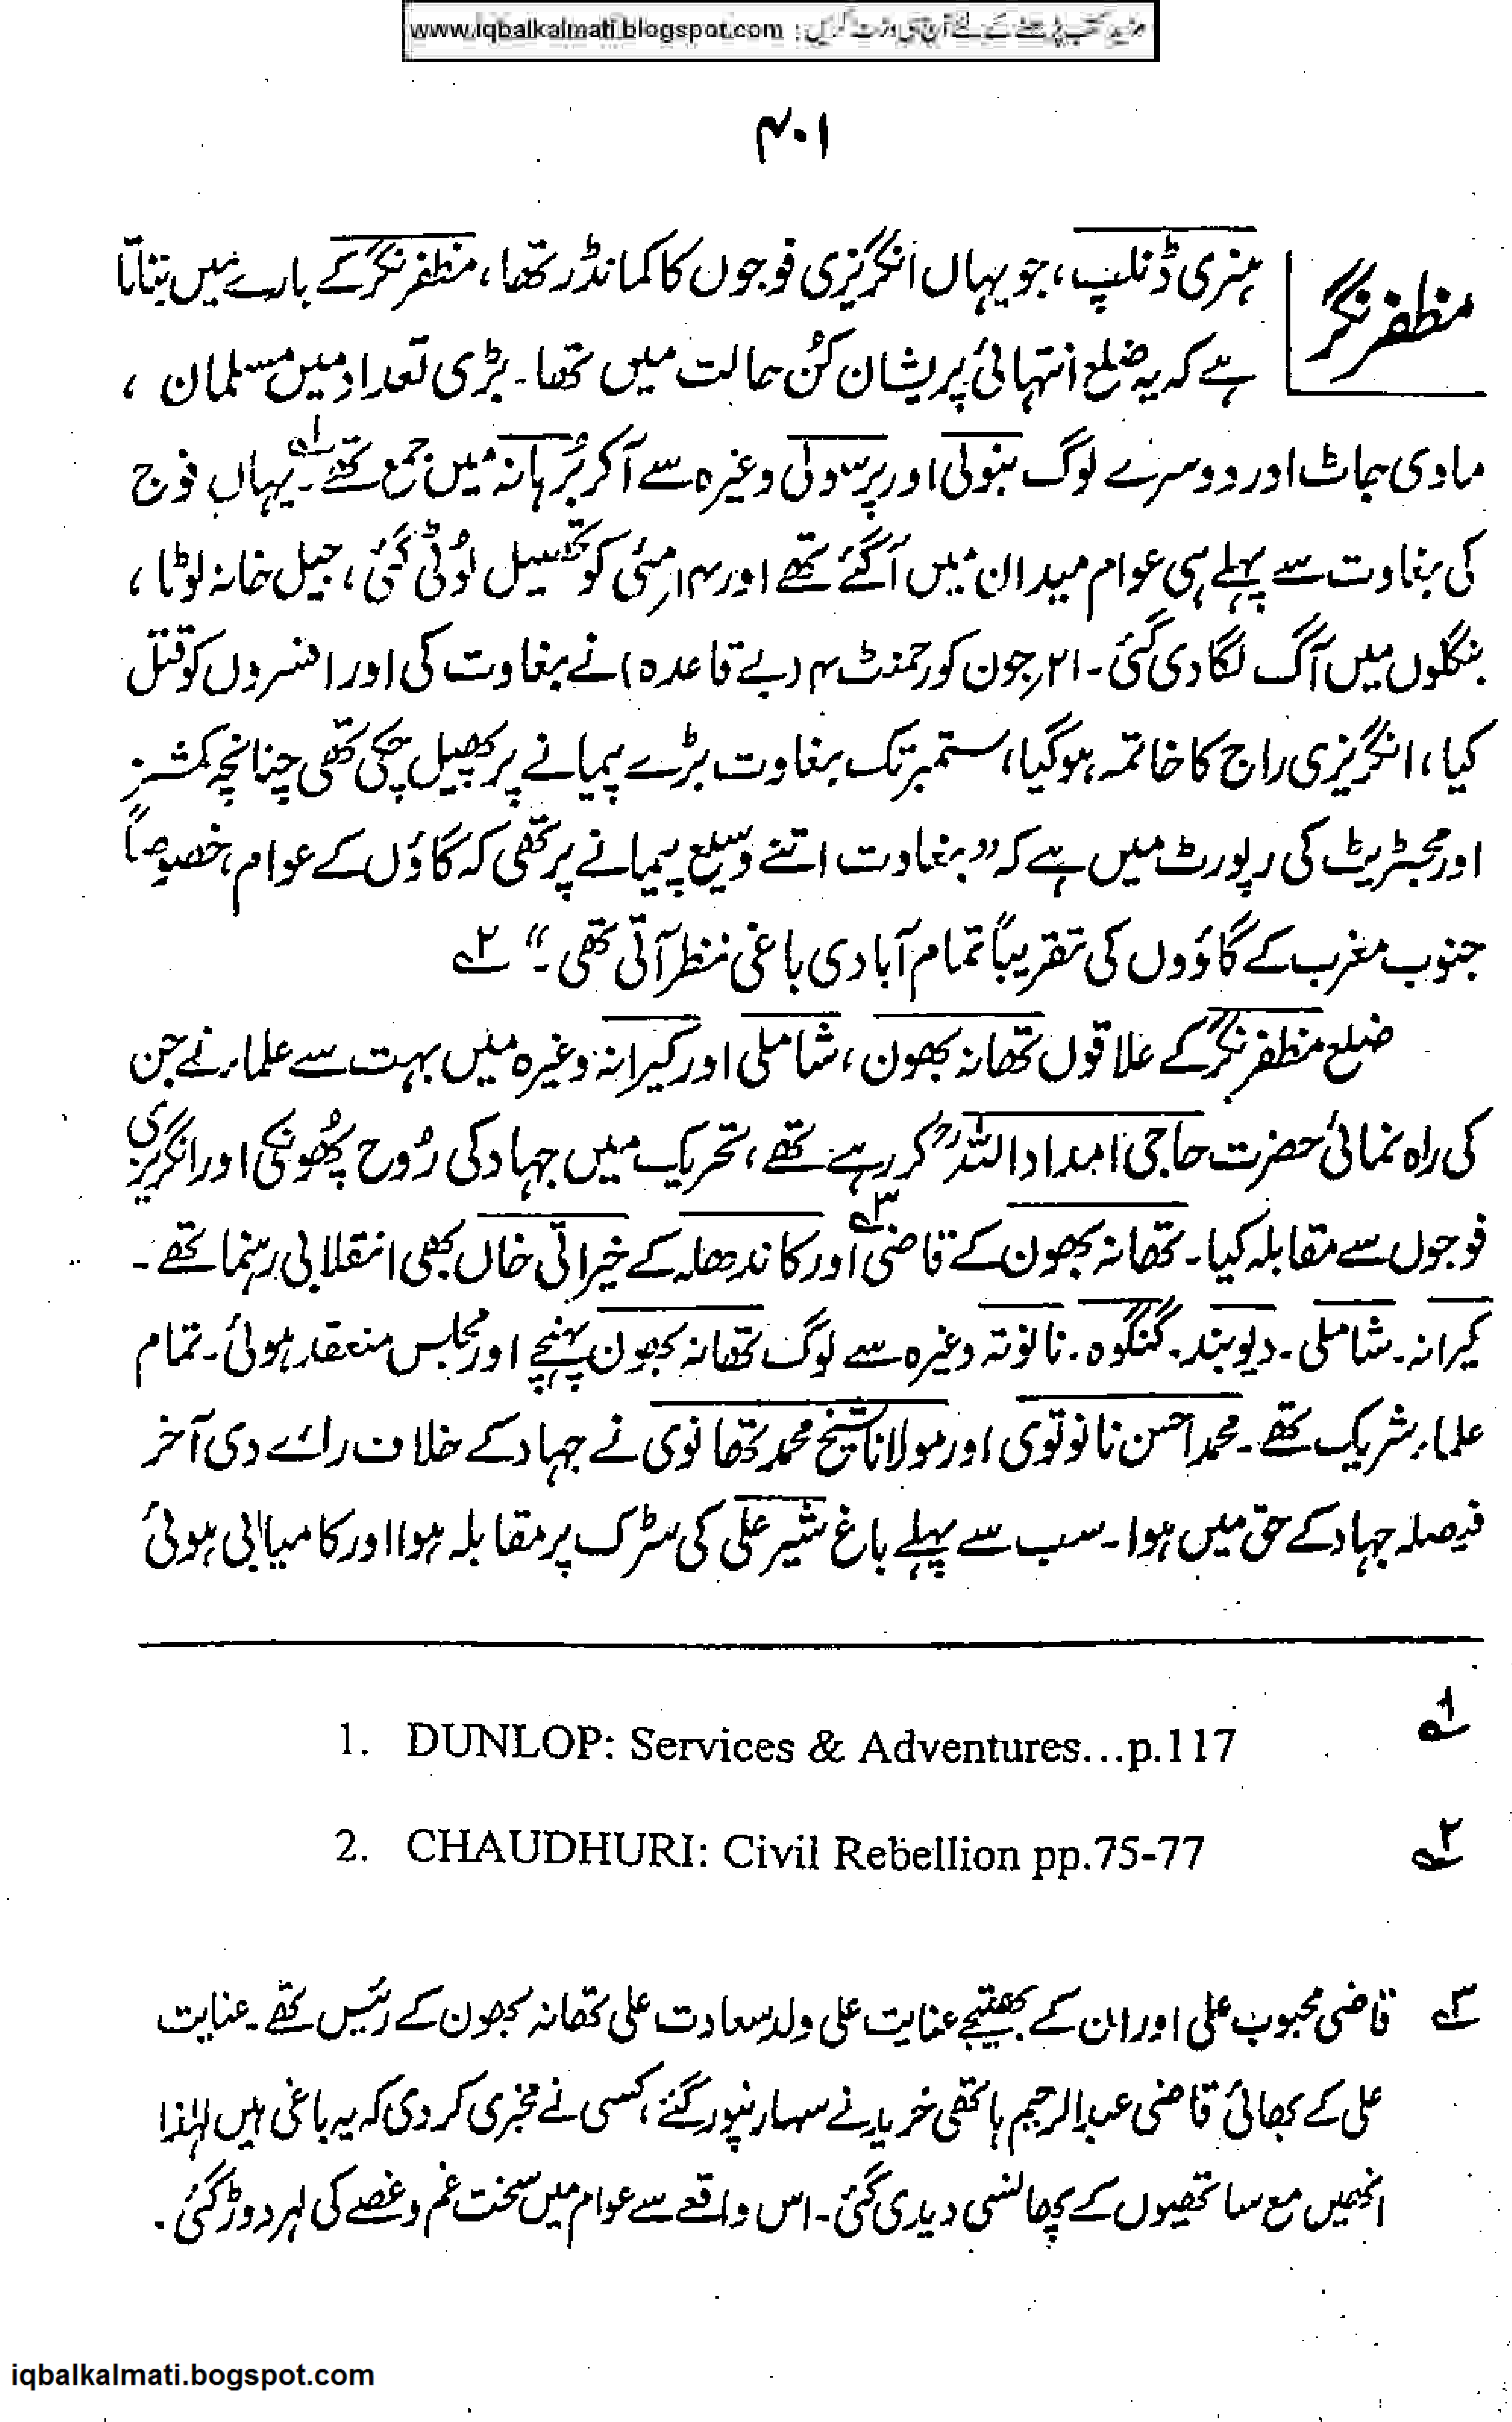 www.iqbalkalmati.blogspot.com : مزید کتب پڑھنے کے لئے آج ہی وزٹ کریں
۴۰۱
مظفر نگر
ہنری ڈنلپ، جو یہاں انگریزی فوجوں کا کمانڈر تھا، مظفر نگر کے بارے میں بتاتا
ہے کہ یہ ضلع انتہائی پریشان کُن حالت میں تھا۔ بڑی تعداد میں مسلمان ،
ماوی جاٹ اور دوسرے لوگ بنولی اور پرسولی وغیرہ سے آکر بُرہانہ میں جمع تھے۔۱؎ یہاں فوج
کی بغاوت سے پہلے ہی عوام میدان میں آگئے تھے اور ۱۴ مئی کو تحصیل لوُٹی گئی، جیل خانہ لوٹا،
بنگلوں میں آگ لگا دی گئی۔ ۲۱؍جون کو رجمنٹ ۴ (بے قاعدہ) نے بغاوت کی اور افسروں کو قتل
کیا، انگریزی راج کا خاتمہ ہوگیا، ستمبر تک بغاوت بڑے پیمانے پر پھیل چکی تھی چنانچہ کمشنر
اور مجسٹریٹ کی رپورٹ میں ہے کہ ”بغاوت اتنے وسیع پیمانے پر تھی کہ گاؤں کے عوام، خصوصاً
جنوب مغرب کے گاؤوں کی تقریباً تمام آبادی باغی نظر آتی تھی۔“ ۲؎
ضلع مظفر نگر کے علاقوں تھانہ بھون، شاملی اور کیرانہ وغیرہ میں بہت سے علماء نے جن
کی راہ نمائی حضرت حاجی امداد اللہؒ کر رہے تھے، تحریک میں جہاد کی رُوح پھُونکی اور انگریزی
فوجوں سے مقابلہ کیا۔ تھانہ بھون کے قاضی۳؎ اور کاندھلہ کے خیراتی خاں بھی انقلابی رہنما تھے۔
کیرانہ۔ شاملی۔ دیوبند۔ گنگوہ۔ نانوتہ وغیرہ سے لوگ تھانہ بھون پہنچے اور مجلس منعقد ہوئی۔ تمام
علماء شریک تھے۔ محمد احسن نانوتوی اور مولانا شیخ محمد تھانوی نے جہاد کے خلاف رائے دی آخر
فیصلہ جہاد کے حق میں ہوا۔ سب سے پہلے باغ شیر علی کی سڑک پر مقابلہ ہوا اور کامیابی ہوئی
۱؎ 1. DUNLOP: Services & Adventures...p.117
۲؎ 2. CHAUDHURI: Civil Rebellion pp.75-77
۳؎ قاضی محبوب علی اور ان کے بھتیجے عنایت علی ولد سعادت علی تھانہ بھون کے رئیس تھے۔ عنایت
علی کے بھائی قاضی عبدالرحیم ہاتھی خریدنے سہارنپور گئے، کسی نے مخبری کر دی کہ یہ باغی ہیں لہٰذا
انھیں مع ساتھیوں کے پھانسی دیدی گئی۔ اس واقعے سے عوام میں سخت غم و غصے کی لہر دوڑ گئی۔
iqbalkalmati.bogspot.com